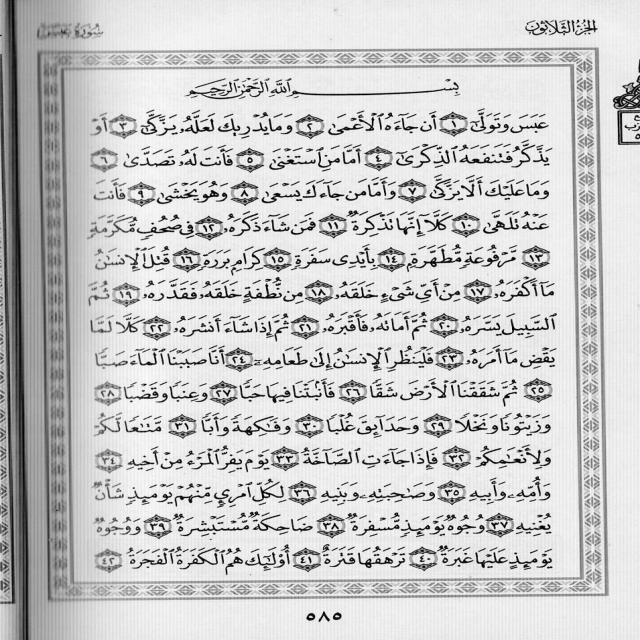 الجزء الثلاثون
سورة عبس
بِسْمِ اللَّهِ الرَّحْمَٰنِ الرَّحِيمِ
عَبَسَ وَتَوَلَّىٰ ١ أَن جَاءَهُ الْأَعْمَىٰ ٢ وَمَا يُدْرِيكَ لَعَلَّهُ يَزَّكَّىٰ ٣ أَوْ
يَذَّكَّرُ فَتَنفَعَهُ الذِّكْرَىٰ ٤ أَمَّا مَنِ اسْتَغْنَىٰ ٥ فَأَنتَ لَهُ تَصَدَّىٰ ٦
وَمَا عَلَيْكَ أَلَّا يَزَّكَّىٰ ٧ وَأَمَّا مَن جَاءَكَ يَسْعَىٰ ٨ وَهُوَ يَخْشَىٰ ٩ فَأَنتَ
عَنْهُ تَلَهَّىٰ ١٠ كَلَّا إِنَّهَا تَذْكِرَةٌ ١١ فَمَن شَاءَ ذَكَرَهُ ١٢ فِي صُحُفٍ مُّكَرَّمَةٍ
١٣ مَّرْفُوعَةٍ مُّطَهَّرَةٍ ١٤ بِأَيْدِي سَفَرَةٍ ١٥ كِرَامٍ بَرَرَةٍ ١٦ قُتِلَ الْإِنسَانُ
مَا أَكْفَرَهُ ١٧ مِنْ أَيِّ شَيْءٍ خَلَقَهُ ١٨ مِن نُّطْفَةٍ خَلَقَهُ فَقَدَّرَهُ ١٩ ثُمَّ
السَّبِيلَ يَسَّرَهُ ٢٠ ثُمَّ أَمَاتَهُ فَأَقْبَرَهُ ٢١ ثُمَّ إِذَا شَاءَ أَنشَرَهُ ٢٢ كَلَّا لَمَّا
يَقْضِ مَا أَمَرَهُ ٢٣ فَلْيَنظُرِ الْإِنسَانُ إِلَىٰ طَعَامِهِ ٢٤ أَنَّا صَبَبْنَا الْمَاءَ صَبًّا
٢٥ ثُمَّ شَقَقْنَا الْأَرْضَ شَقًّا ٢٦ فَأَنبَتْنَا فِيهَا حَبًّا ٢٧ وَعِنَبًا وَقَضْبًا ٢٨
وَزَيْتُونًا وَنَخْلًا ٢٩ وَحَدَائِقَ غُلْبًا ٣٠ وَفَاكِهَةً وَأَبًّا ٣١ مَّتَاعًا لَّكُمْ
وَلِأَنْعَامِكُمْ ٣٢ فَإِذَا جَاءَتِ الصَّاخَّةُ ٣٣ يَوْمَ يَفِرُّ الْمَرْءُ مِنْ أَخِيهِ ٣٤
وَأُمِّهِ وَأَبِيهِ ٣٥ وَصَاحِبَتِهِ وَبَنِيهِ ٣٦ لِكُلِّ امْرِئٍ مِّنْهُمْ يَوْمَئِذٍ شَأْنٌ
يُغْنِيهِ ٣٧ وُجُوهٌ يَوْمَئِذٍ مُّسْفِرَةٌ ٣٨ ضَاحِكَةٌ مُّسْتَبْشِرَةٌ ٣٩ وَوُجُوهٌ
يَوْمَئِذٍ عَلَيْهَا غَبَرَةٌ ٤٠ تَرْهَقُهَا قَتَرَةٌ ٤١ أُولَٰئِكَ هُمُ الْكَفَرَةُ الْفَجَرَةُ ٤٢
٥٨٥